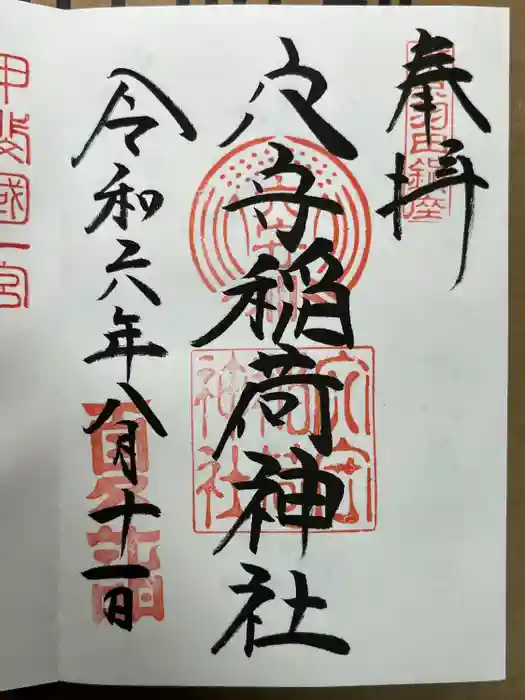 奉拝
穴守稲荷神社
令和六年八月十一日
穴守
稲荷
神社
甲斐國一宮